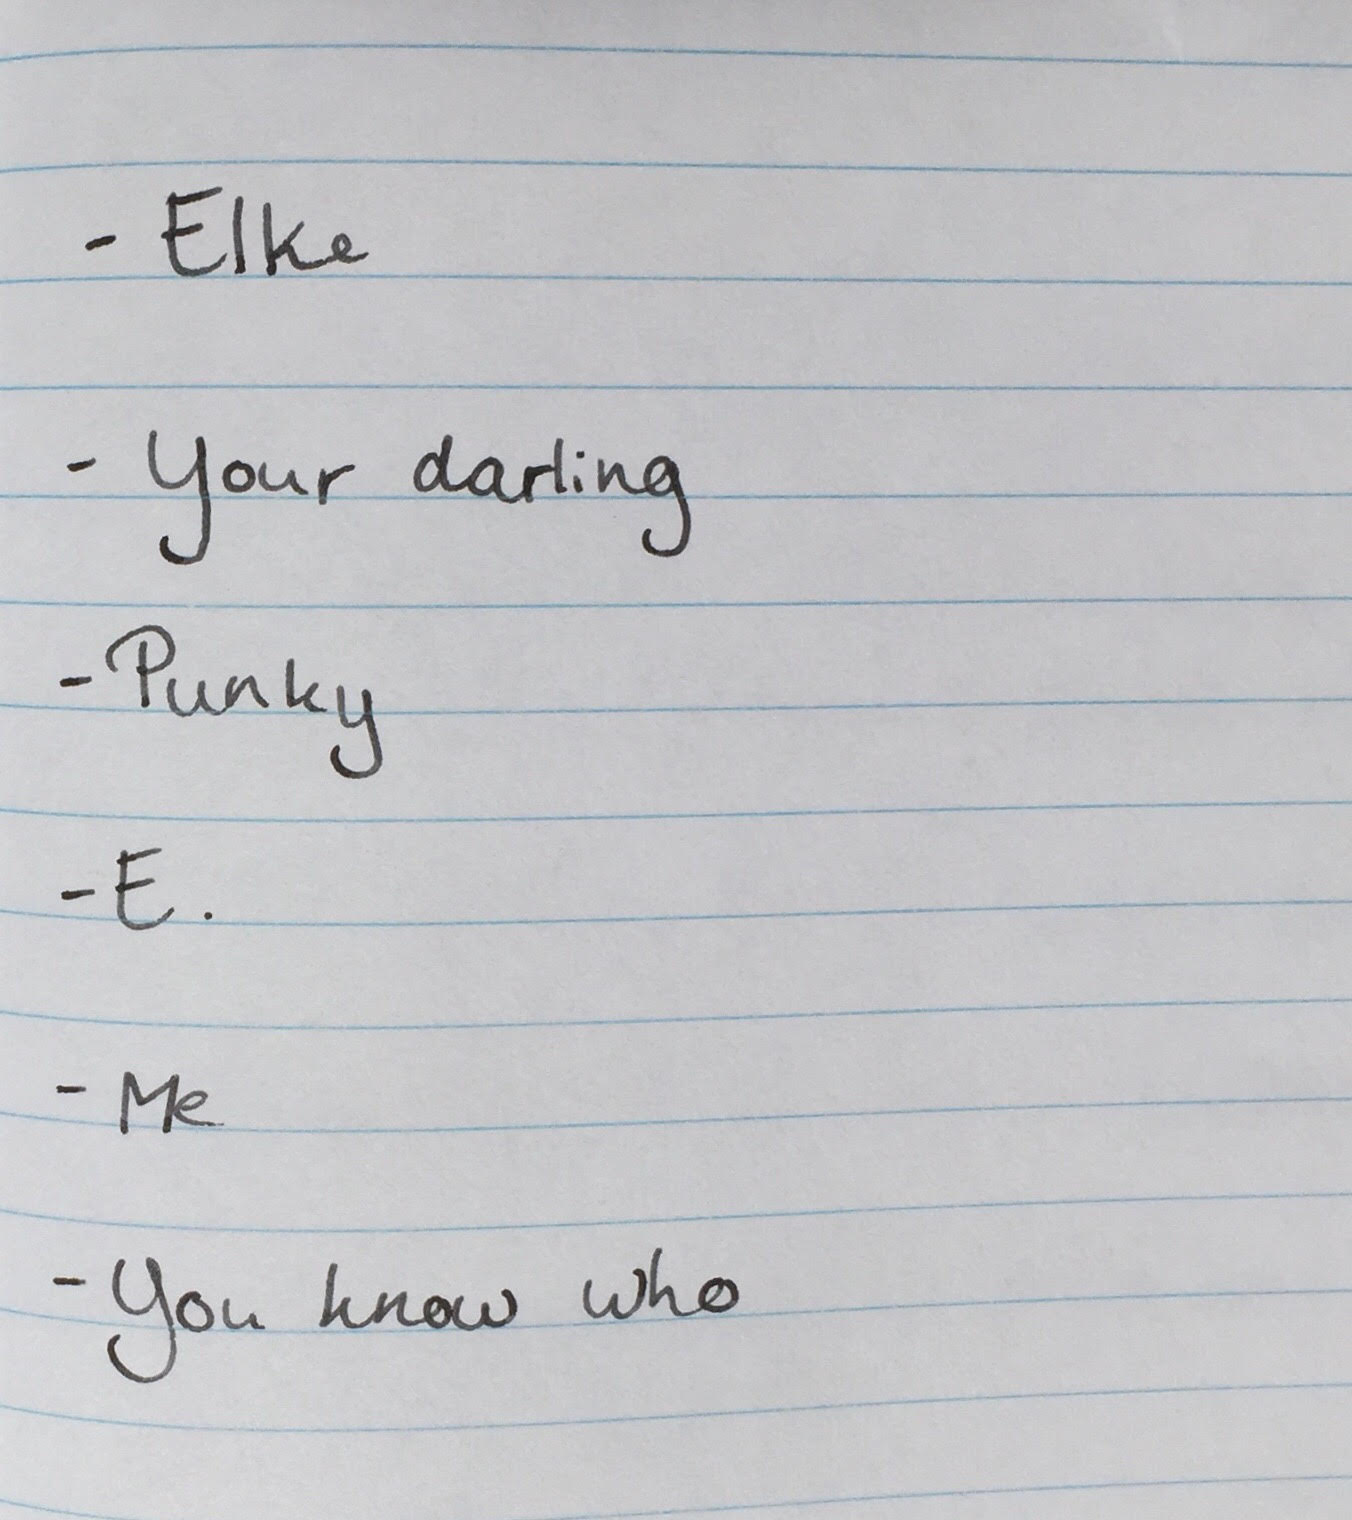 - Elke
- Your darling
- Punky
- E.
- Me
- You know who